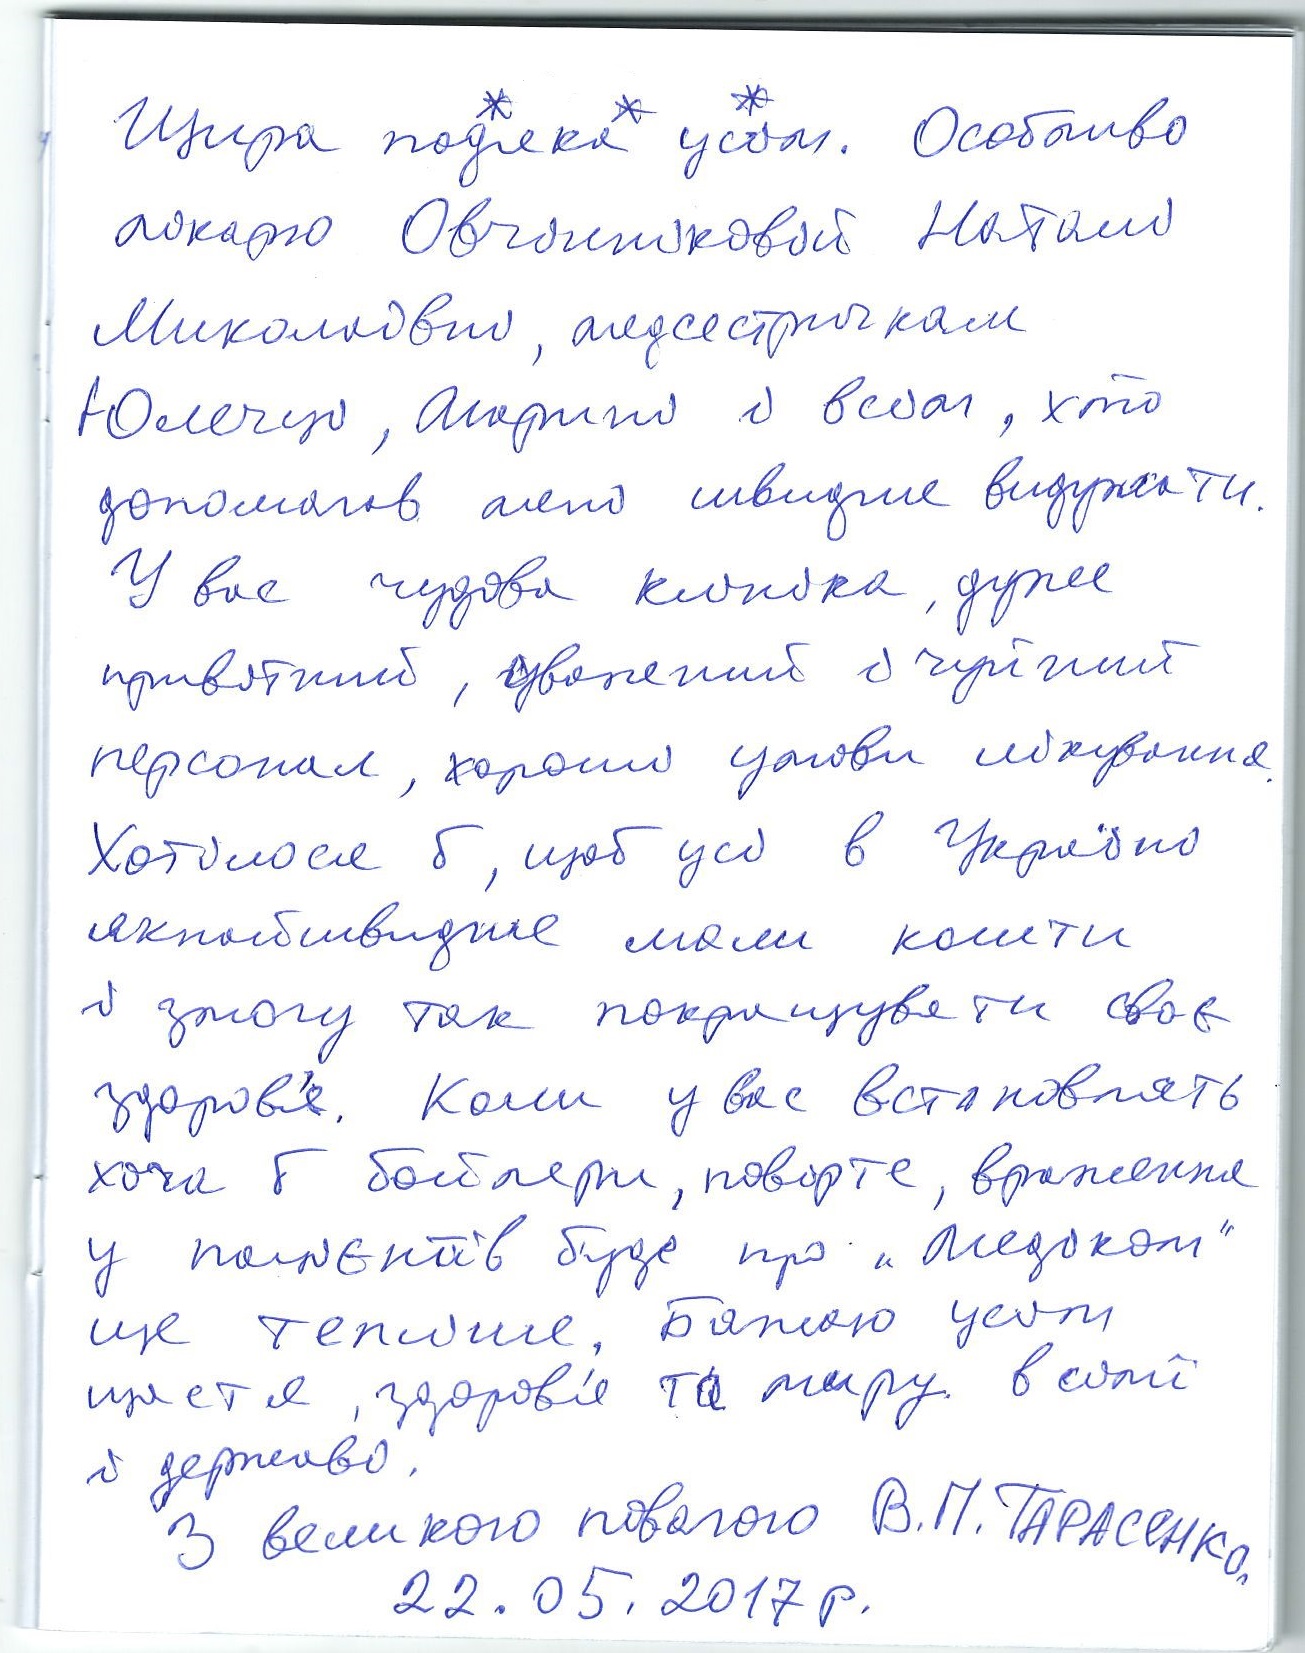 Щира подяка усім. Особливо
лікарю Овчинніковій Наталі
Миколаївні, медсестричкам
Юлечці, Марині і всім, хто
допомагав мені швидше видужати.
У вас чудова клініка, дуже
привітний, уважений і чуйний
персонал, хороші умови лікування.
Хотілося б, щоб усі в Україні
якнайшвидше мали кошти
і змогу так покращувати своє
здоров'я. Коли у вас встановлять
хоча б бойлери, повірте, враження
у пацієнтів буде про „Медіком"
ще тепліше. Бажаю усім
щастя, здоров'я та миру в сім'ї
і державі.
З великою повагою В.П. ТАРАСЕНКО.
22.05.2017 р.